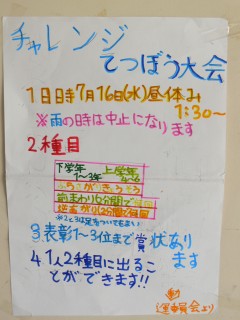 チャレンジ
てつぼう大会
1日時7月16日(水)昼休み
1:30～
※雨の時は中止になります
2種目
下学年 上学年
1～3年
前まわり1分間で何回
逆上がり1分間で何回
※2と3は足をついてもよい
3表彰1～3位まで賞状あり
ます
4 1人2種目に出るこ
とができます!!
運委員会より